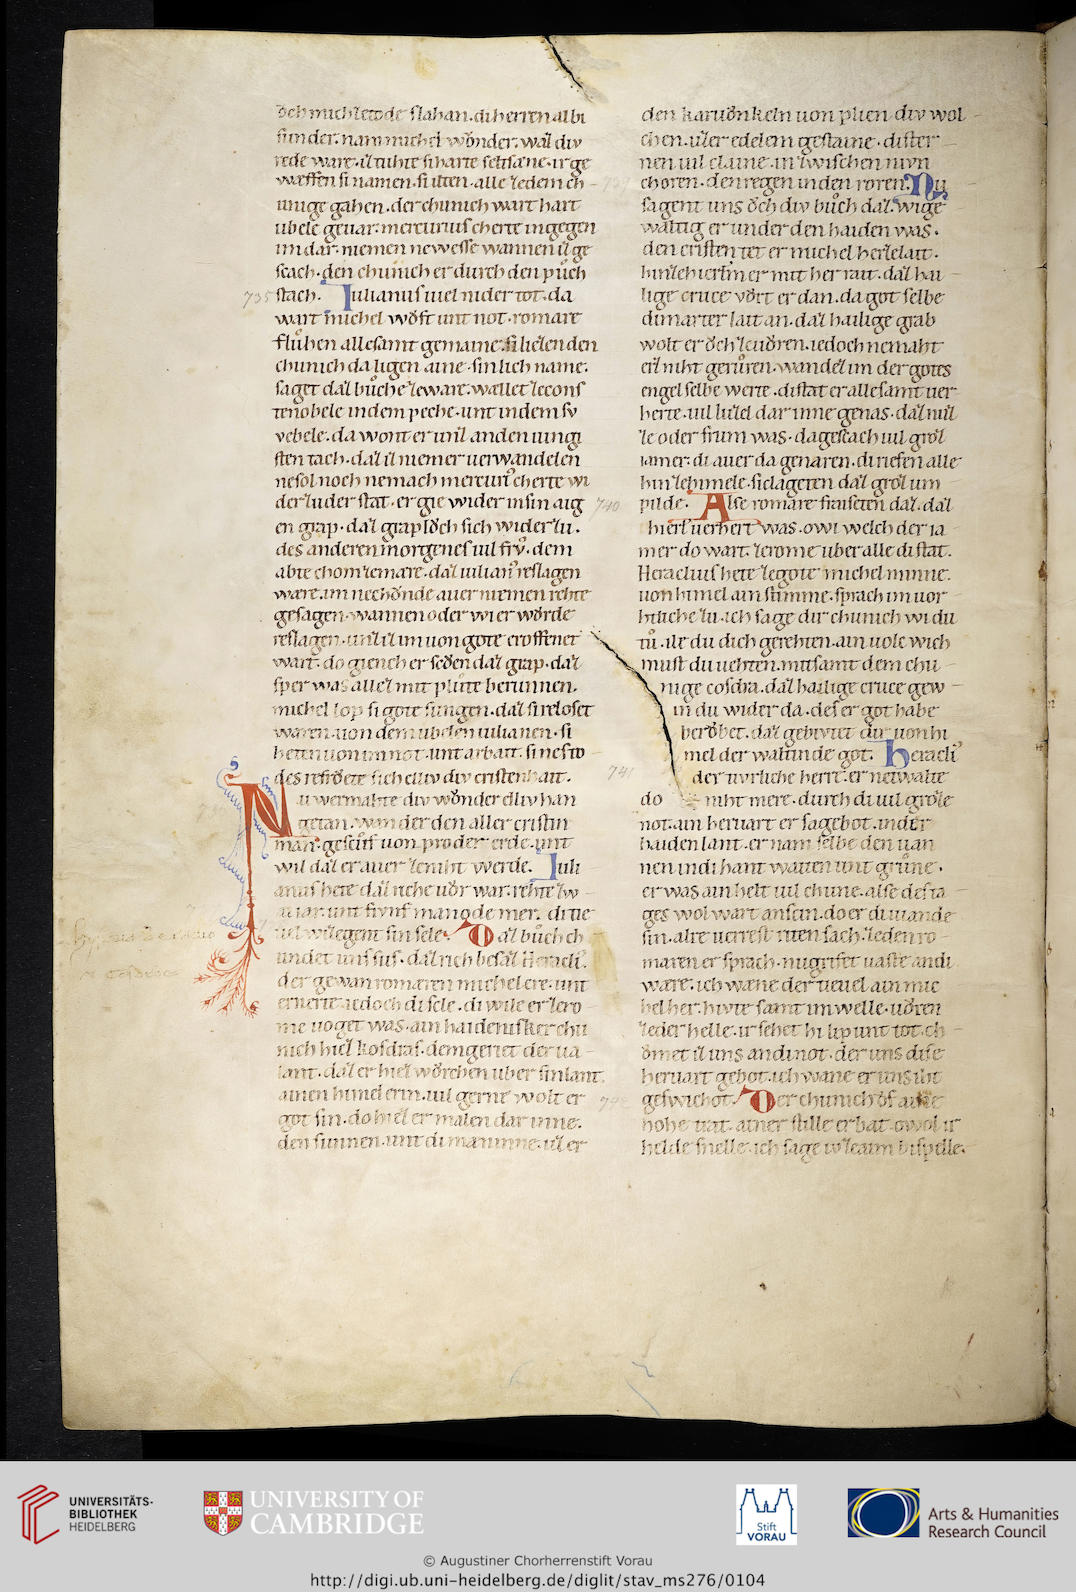 ŏch mich ze tode slahan. di herren albi
sunder. nam michel wŏnder. waz div
rede ware. iz tuhte si harte seltsæne. ir ge
wæffen si namen. si ilten. alle zedem ch
unige gahen. der chunich wart hart
ubele geuar. mercurius cherte ingegen
im dar. niemen newesse wannen iz ge
scach. den chunich er durch den půch
735 stach. Iulianus uiel nider tot. da
wart michel wŏft unt not. romare
fluhen alle samt gemaine. si liezen den
chunich da ligen aine. sin lich name.
saget daz bůche zeware. wallet ze cons
tenobele in dem peche. unt in dem sv
vebele. da wont er unz an den iungi
sten tach. daz iz niemer uerwandelen
nesol noch nemach. mercurius cherte wi
der zu der stat. er gie wider in sin aug
en grap. daz grap slŏch sich wider zu.
des anderen morgenes uil frů. dem
abte chom ze mare. daz iulianus reslagen
ware. im nechŏnde auer niemen rehte
gesagen. wannen oder wi er wŏrde
reslagen. unz iz im uon gote eroffenet
wart. do giench er seden daz grap. daz
sper was allez mit plůte berunnen.
michel lop si gote sungen. daz si reloset
waren. uon dem ubelen iulianen. si
heten uon im not. unt arbait. si nesto
des refrŏete sich elliv div cristenhait.
Nu wermahte div wŏnder elliv han
getan. wan der den aller eristin
man. gescůf uon pro der erde. unt
wil daz er auer ze niht werde. Iuli
anus hete daz riche uŏr war. rehte zw
ai iar. unt fivnf manode mer. di tie
uel wizegent sin sele. Daz bůch ch
undet uns sus. daz rich besaz Heraclius.
der gewan romaren michel ere. unt
ernerte iedoch di sele. di wile er ze ro
me uoget was. ain haidenisker chu
nich hiez kosdras. dem geriet der ua
lant. daz er hiez wŏrchen uber sin lant.
ainen himel erin. uil gerne wolt er
got sin. do hiez er malen dar inne.
den sunnen. unt di maninne. uz er
den karuŏnkeln uon plien div wol
chen. uzer edelem gestaine. di ster
nen uil claine. in zwischen nivn
739 choren. den regen in den roren. Nu
sagent uns ŏch div bůch daz. wige
waltig er under den haiden was.
den cristen tet er michel herzelait.
hinze hierusalem er mit her rait. daz hai
lige cruce vŏrt er dan. da got selbe
di marter lait an. daz hailige grab
wolt er ŏch zeuŏren. iedoch nemaht
erz niht gerůren. wande im der gotes
engel selbe werte. di stat er alle samt uer
herte. uil luzel dar inne genas. daz nuz
ze oder frum was. da gescach uil groz
iamer. di auer da genaren. di riefen alle
hinze himele. si clageten daz groz um
740 pilde. Alse romare fraiseten daz. daz
hierusalem uerhert was. owi welch der ia
mer do wart. ze rome uber alle di stat.
Heraclius hete ze gote michel minne.
uon himel ain stimme. sprach im uor
htliche zu. ich sage dir chunich wi du
tů. ile du dich gerehten. ain uolc wich
must du uehten. mit samt dem chu
nige cosdra. daz hailige cruce gew
in du wider da. des er got habe
berŏbet. daz gebivtet dir uon hi
mel der waltunde got. Heraclius
741 der tivrliche herre. er netwalte
do niht mere. durch di uil groze
not. ain heruart er sa gebot. in der
haiden lant. er nam selbe den uan
nen in di hant waiten unt grůne.
er was ain helt uil chune. alse des ta
ges wol wart anscin. do er di uiande
sin. alre uerrest riten sach. ze den ro
maren er sprach. nu grifet uaste an di
wære. ich wæne der tieuel ain mic
hel her. hivte samt im welle. uŏren
ze der helle. ir sehet hi lip unt tot. ch
ŏmet iz uns an di not. der uns dise
heruart gebot. ich wane er uns iht
742 geswichot. Der chunich ŏf aine
hohe trat. ainer stille er bat. owol ir
helde snelle. ich sage iv ze aim bispelle.
UNIVERSITÄTS-
BIBLIOTHEK
HEIDELBERG
UNIVERSITY OF
CAMBRIDGE
Stift
VORAU
Arts & Humanities
Research Council
© Augustiner Chorherrenstift Vorau
http://digi.ub.uni-heidelberg.de/diglit/stav_ms276/0104